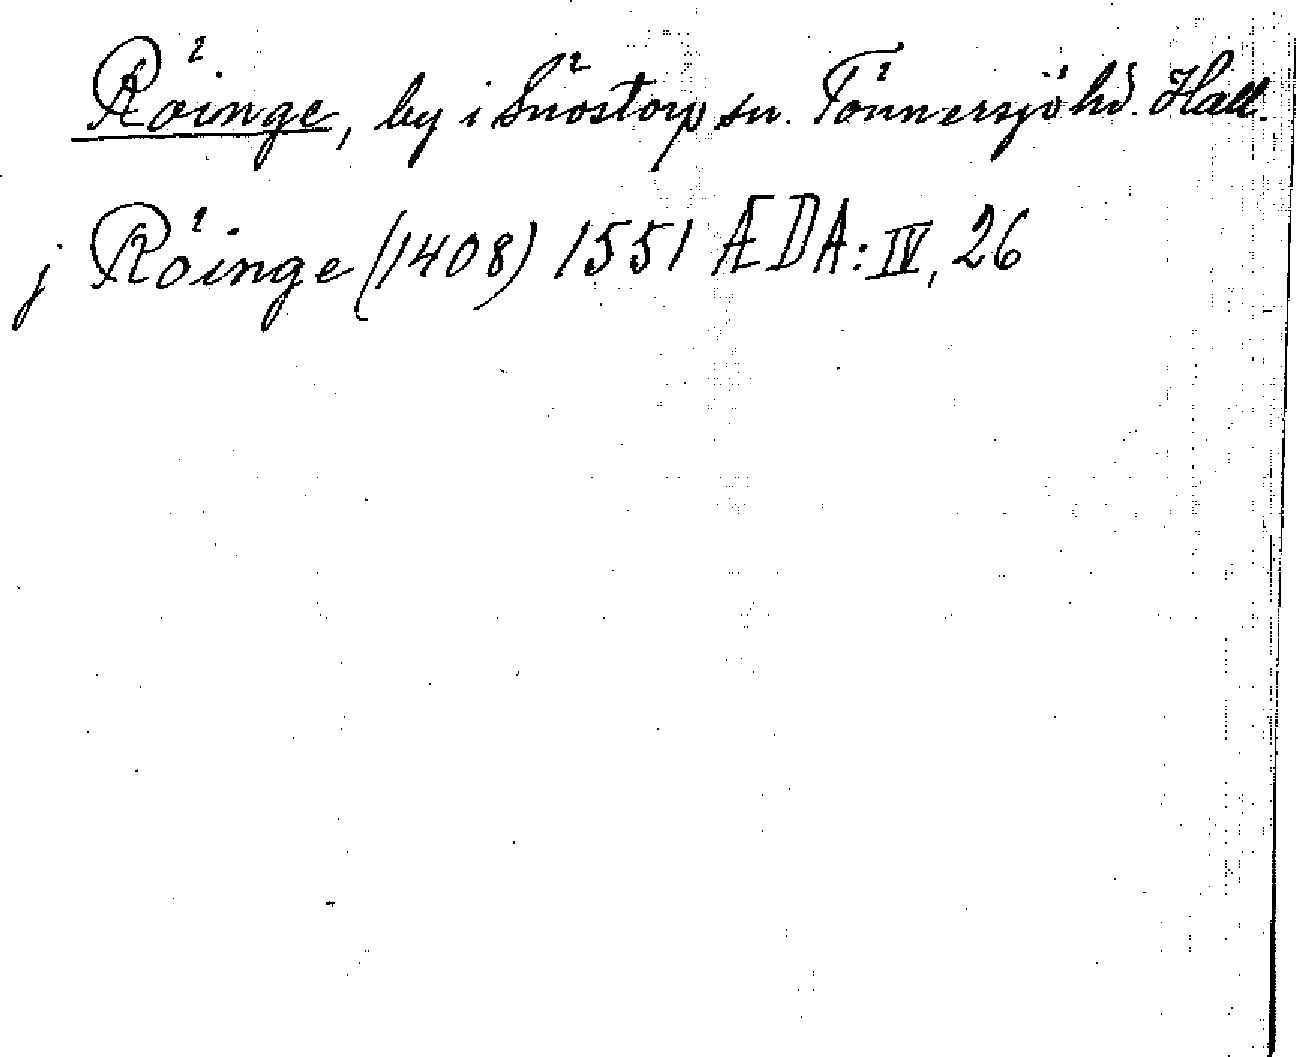 Röinge, by i Snöstorp sn. Tönnersjö hd. Hall.
j Röinge (1408) 1551 ÆDA: IV, 26